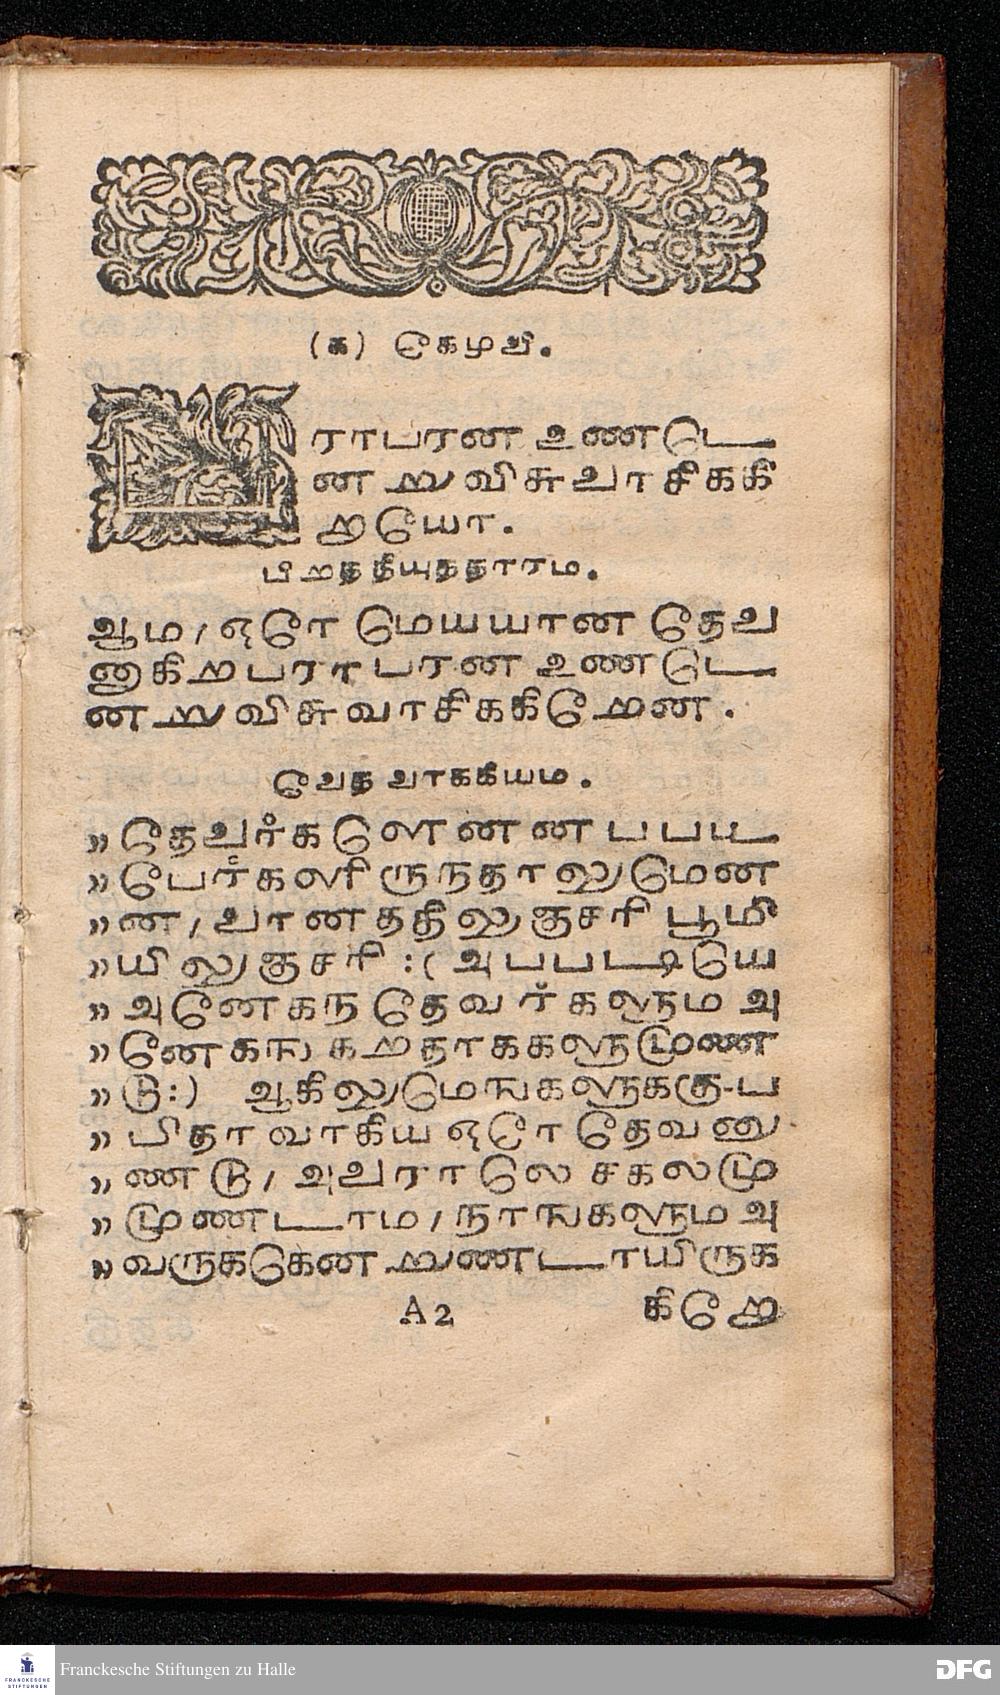 (க) கெழவி.
ராபரன உணடெ
ன றுவிசுவாசிககி
றயோ.
பிறததியுததாரம.
ஆம, ஒரே மெயயான தேவ
னுகிறபராபரன உணடெ
ன றுவிசுவாசிககிறென.
வெத வாககியம.
” தேவர்களெனன பபட
” பேர்களிருநதாலுமென
” ன, வானததிலுஞசரி பூமி
” யிலுஞசரி :( அபபடியெ
” அனேகந தேவர்களும அ
” னேகங கறதாககளுமுண
” டு:) ஆகிலுமெஙகளுககு-ப
” பிதா வாகிய ஒரே தேவனு
” ணடு, அவராலெ சகலமு
” முணடாம, நாஙகளும அ
” வருககெனறுணடாயிருக
A 2 கிறே
Franckesche Stiftungen zu Halle
FRANCKESCHE STIFTUNGEN
DFG